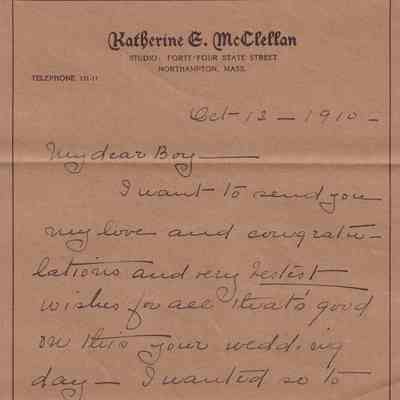 Katherine E. McClellan
STUDIO: FORTY-FOUR STATE STREET
NORTHAMPTON, MASS.
TELEPHONE 131-11
Oct 12 — 1910 —
My dear Boy —
I want to send you
my love and congratu-
lations and very bestest
wishes for all that's good
on this your wedding
day — I wanted so to